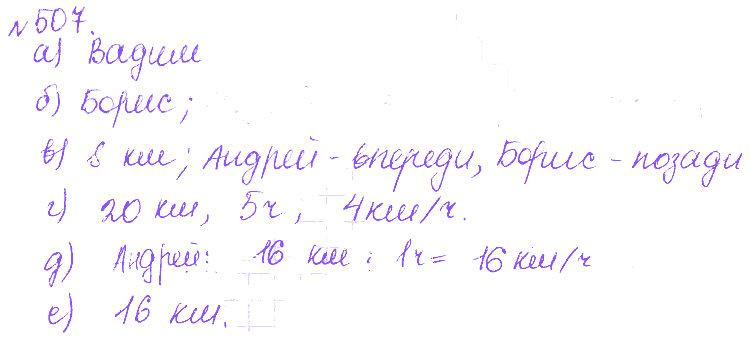 №507.
а) Вадим
б) Борис;
в) 8 км; Андрей - впереди, Борис - позади
г) 20 км, 5ч, 4км/ч.
д) Андрей: 16 км : 1ч = 16 км/ч
е) 16 км.